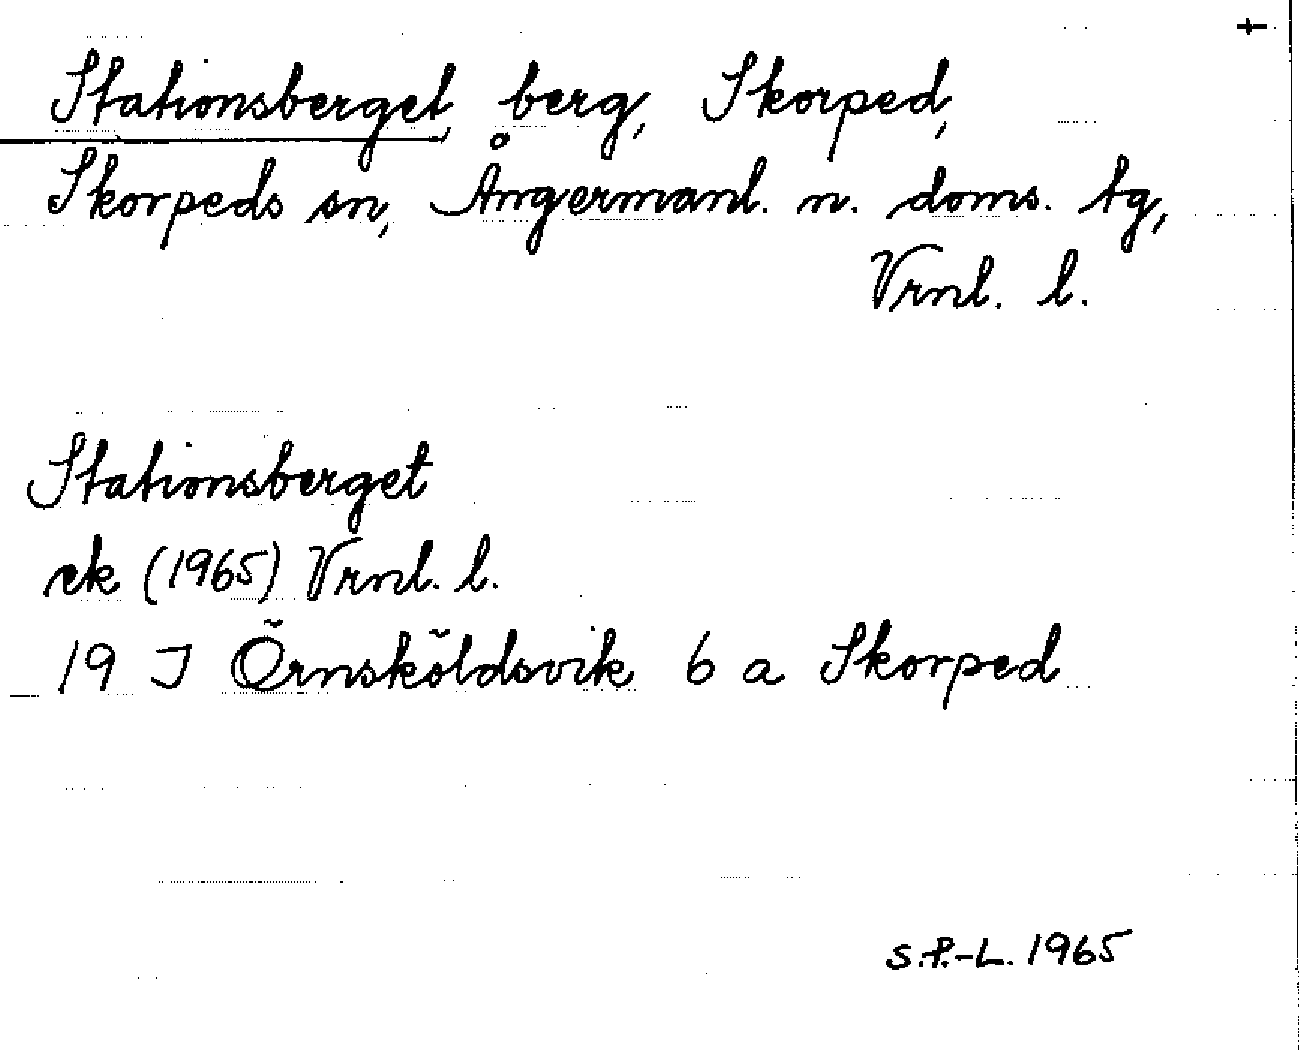 +
Stationsberget, berg, Skorped,
Skorpeds sn, Ångermanl. n. doms. tg,
Vrnl. l.
Stationsberget
ek (1965) Vrnl. l.
19 J Örnsköldsvik 6 a Skorped
S.P.-L. 1965